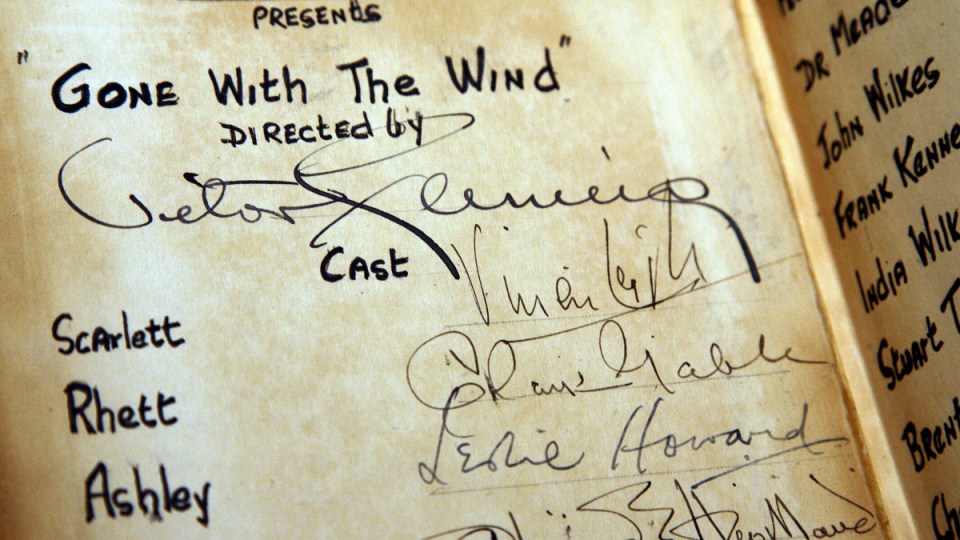 PRESENTS
"GONE With The WIND"
DIRECTED by
Victor Fleming
CAST
Scarlett Vivien Leigh
Rhett Clark Gable
Ashley Leslie Howard
DR MEADE
John Wilkes
FRANK KENNE
India WILK
Stuart T
BRENT
Ch